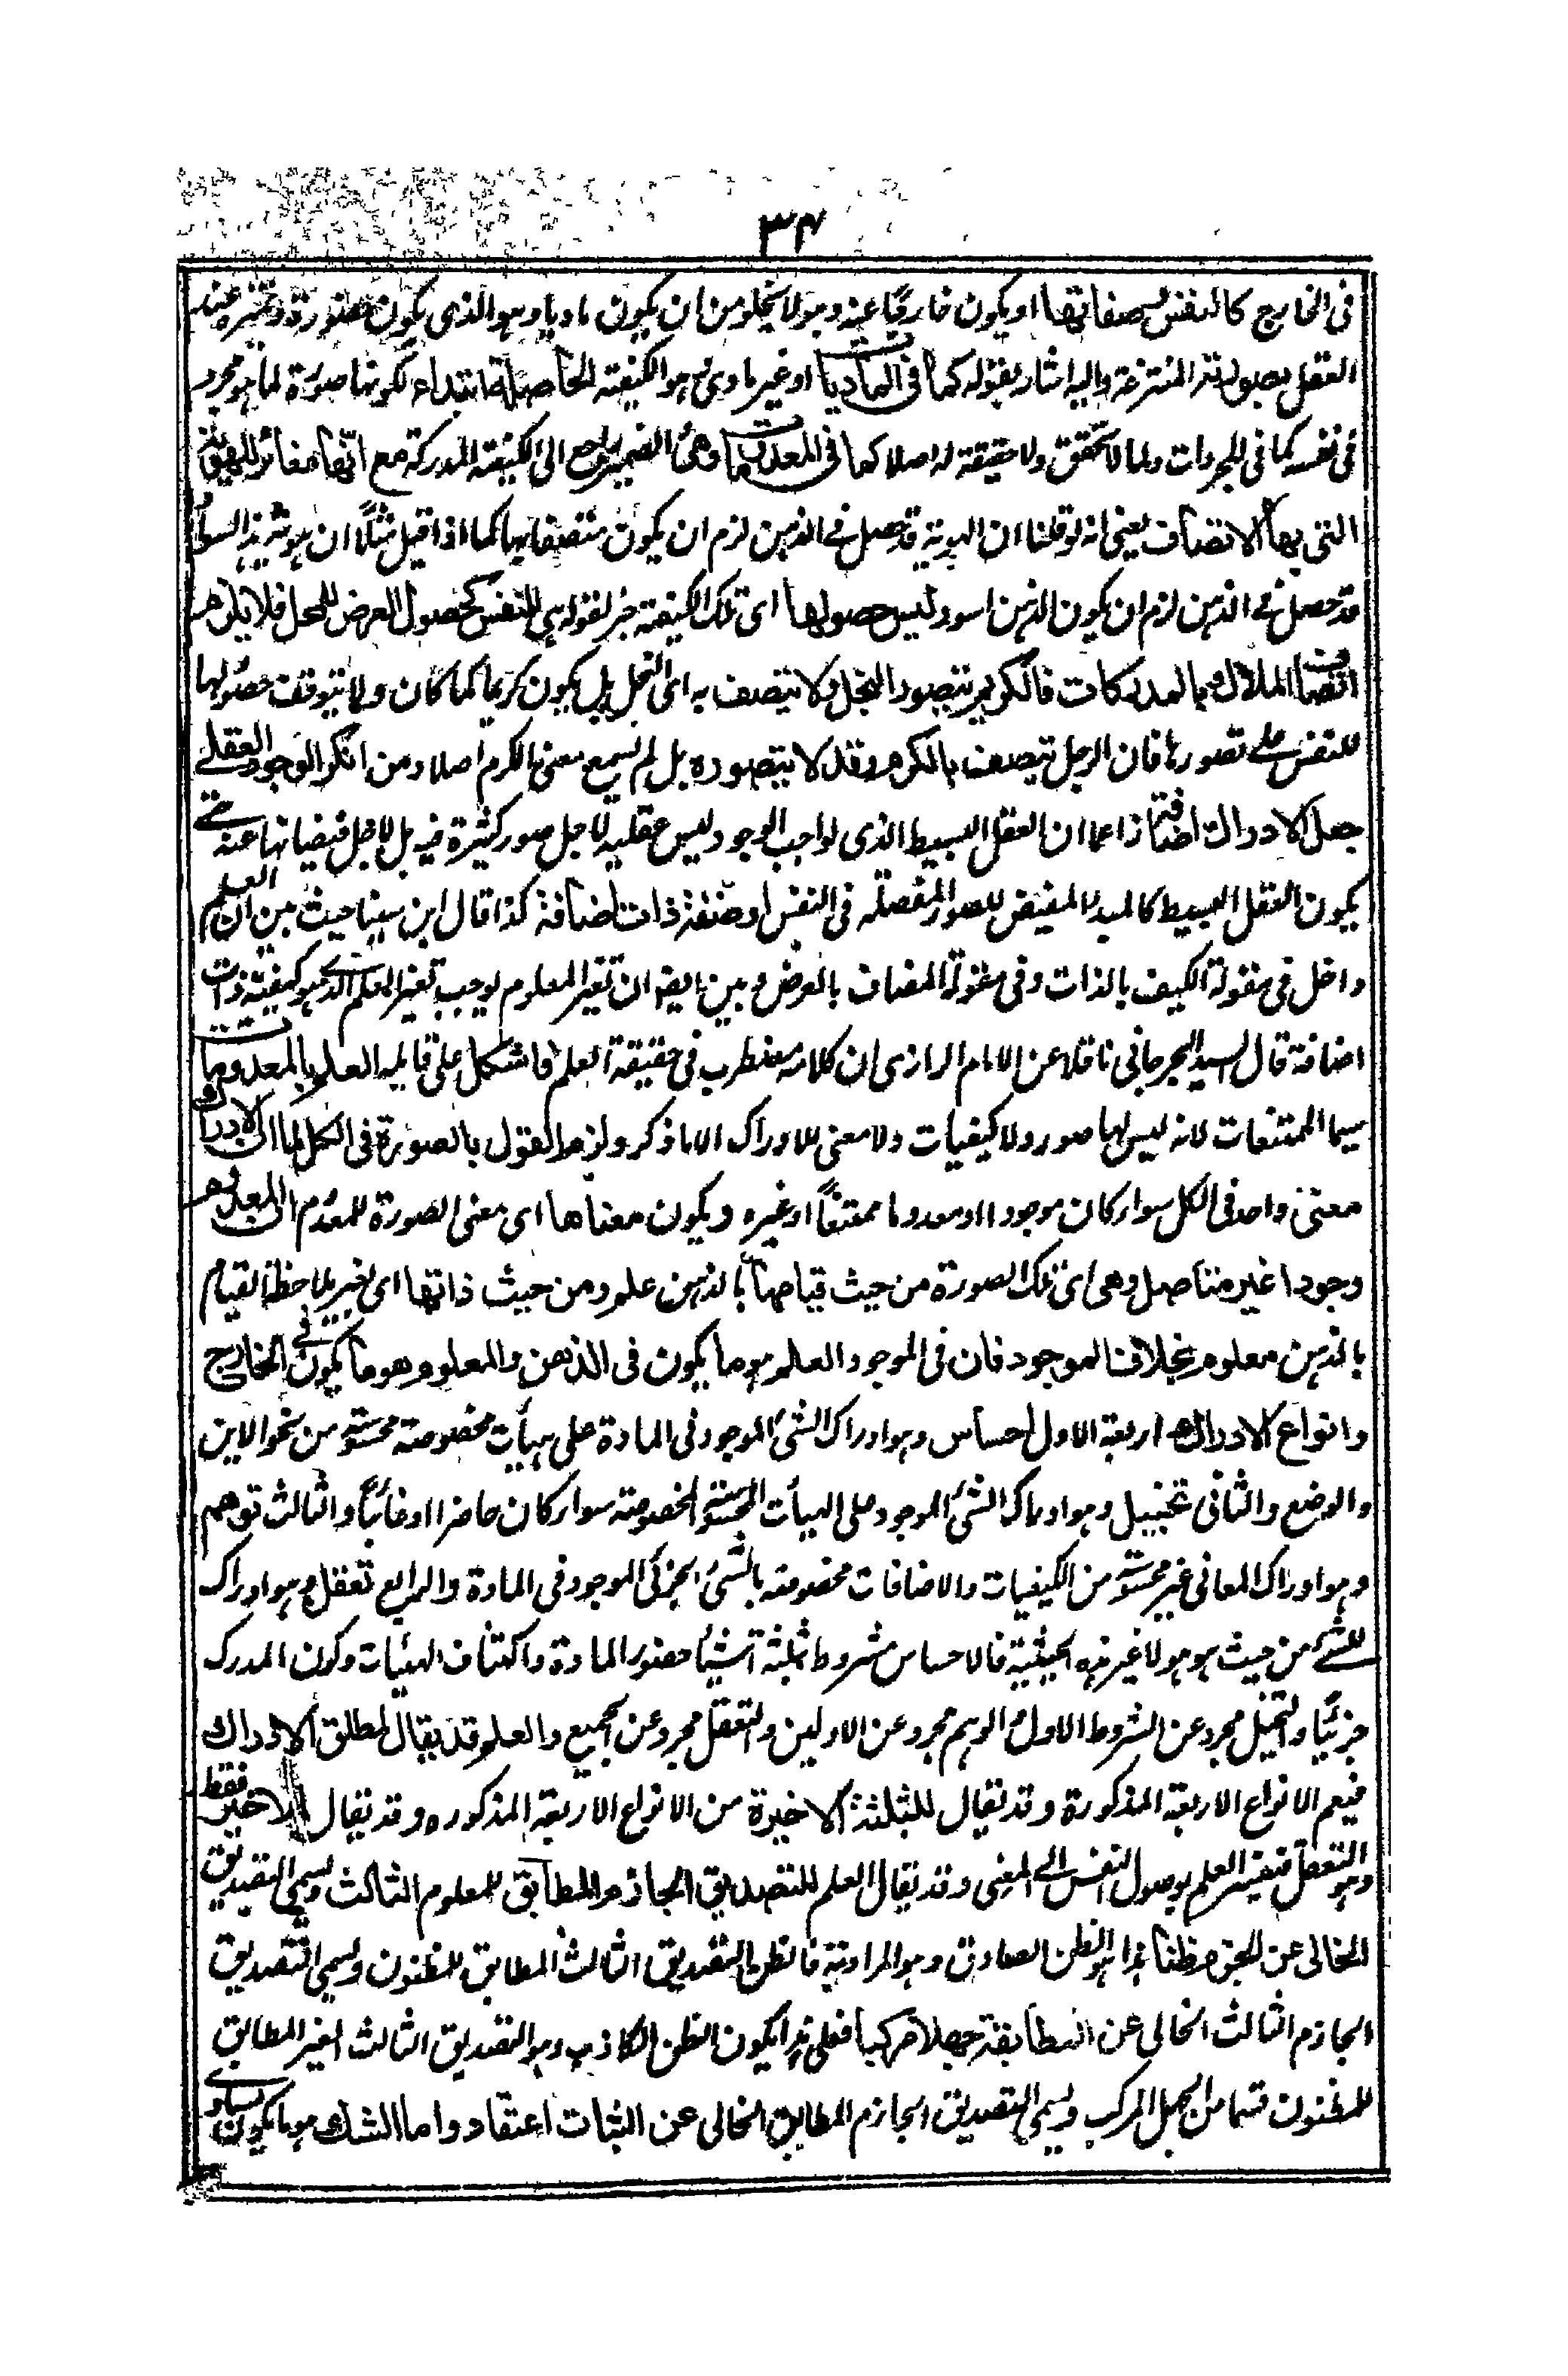 ٣٤
فى الخارج كالنفس بصفاتها او يكون خارجيا عنه وهو لا يخلو من ان يكون ماديا وهو الذى يكون حضوره وتميزه عند
العقل بصورته المنتزعة واليه اشار بقوله كما فى الماديات او غير مادى هو الكيفية الحاصلة ابتداء لكونها صورة لما هو مجرد
فى نفسه كما فى المجردات ولما لا تحقق ولا حقيقة له اصلا كما فى المعدومات وهى الضمير راجع الى الكيفية المدركة مع انها مغائر للهوية
التى بها الاتصاف يعنى انه لو قلنا ان الهوية قد حصل فى الذهن لزم ان يكون متصفا بها كما اذا قيل مثلا ان هوية هذا السواد
قد حصل فى الذهن لزم ان يكون الذهن اسود ليس حصولها اى تلك الكيفية خبر لقوله هى للنفس كحصول العرض للمحل فلا يلزم
اتصاف المدرك بالمدركات فالكريم يتصور البخل ولا يتصف به اى البخل بل يكون كريما كما كان ولا يتوقف حصولها
للنفس على تصورها فان الرجل يتصف بالكرم وقد لا يتصوره بل لم يسمع معنى الكرم اصلا ومن انكر الوجود العقلى
جعل الادراك اضافة زاعما ان العقل البسيط الذى لواجب الوجود ليس عقليه لاجل صور كثيرة فيه بل لاجل فيضانها عنه حتى
يكون العقل البسيط كالمبدا المفيض للصور المفصلة فى النفس او صفة ذات اضافة كذا قال ابن سينا حيث بين ان العلم
داخل فى مقولة الكيف بالذات وفى مقولة المضاف بالعرض وبين ايضا ان تغير المعلوم يوجب تغير العلم الذى هو كيفية ذات
اضافة قال السيد الجرجانى ناقلا عن الامام الرازى ان كلامه مضطرب فى حقيقة العلم فاشكل على قائليه العلم بالمعدومات
سيما الممتنعات لانه ليس لها صور ولا كيفيات ولا معنى للادراك الا ما ذكر ولزم القول بالصورة فى الكل لما ان الادراك
معنى واحد فى الكل سواء كان موجودا او معدوما ممتنعا او غيره ويكون معناها اى معنى الصورة للمعدوم ان المعدوم
وجودا غير متاصل وهى اى تلك الصورة من حيث قيامها بالذهن علم ومن حيث ذاتها اى بغير ملاحظة القيام
بالذهن معلوم بخلاف الموجود فان فى الموجود العلم هو ما يكون فى الذهن والمعلوم هو ما يكون فى الخارج
وانواع الادراك اربعة الاول احساس وهو ادراك الشئ الموجود فى المادة على هيأت مخصوصة محسوسة من نحو الاين
والوضع والثانى تخييل وهو ادراك الشئ الموجود على الهيأت المحسوسة المخصوصة سواء كان حاضرا او غائبا والثالث توهم
وهو ادراك المعانى غير محسوسة من الكيفيات والاضافات مخصوصة بالشئ الجزئى الموجود فى المادة والرابع تعقل وهو ادراك
للشئ من حيث هو هو لا غير هذه الحيثية فالاحساس مشروط بثلثة اشياء حضور المادة واكتناف الهيئات وكون المدرك
جزئيا والتخيل مجرد عن الشرط الاول والوهم مجرد عن الاولين والتعقل مجرد عن الجميع والعلم قد يقال لمطلق الادراك
فيعم الانواع الاربعة المذكورة وقد يقال للثلثة الاخيرة من الانواع الاربعة المذكوره وقد يقال للاخير فقط
وهو التعقل فيفسر العلم بوصول النفس الى المعنى وقد يقال العلم للتصديق الجازم المطابق للمعلوم الثالث ويسمى التصديق
الخالى عن الجزم ظنا هذا هو الظن الصادق وهو المراد فالظن التصديق الثالث المطابق للمظنون ويسمى التصديق
الجازم الثالث الخالى عن المطابقة جهلا مركبا فعلى هذا يكون الظن الكاذب وهو التصديق الثالث الغير المطابق
للمظنون قسما من الجهل المركب ويسمى التصديق الجازم المطابق الخالى عن الثبات اعتقادا واما الشك هو ما يكون تساوى